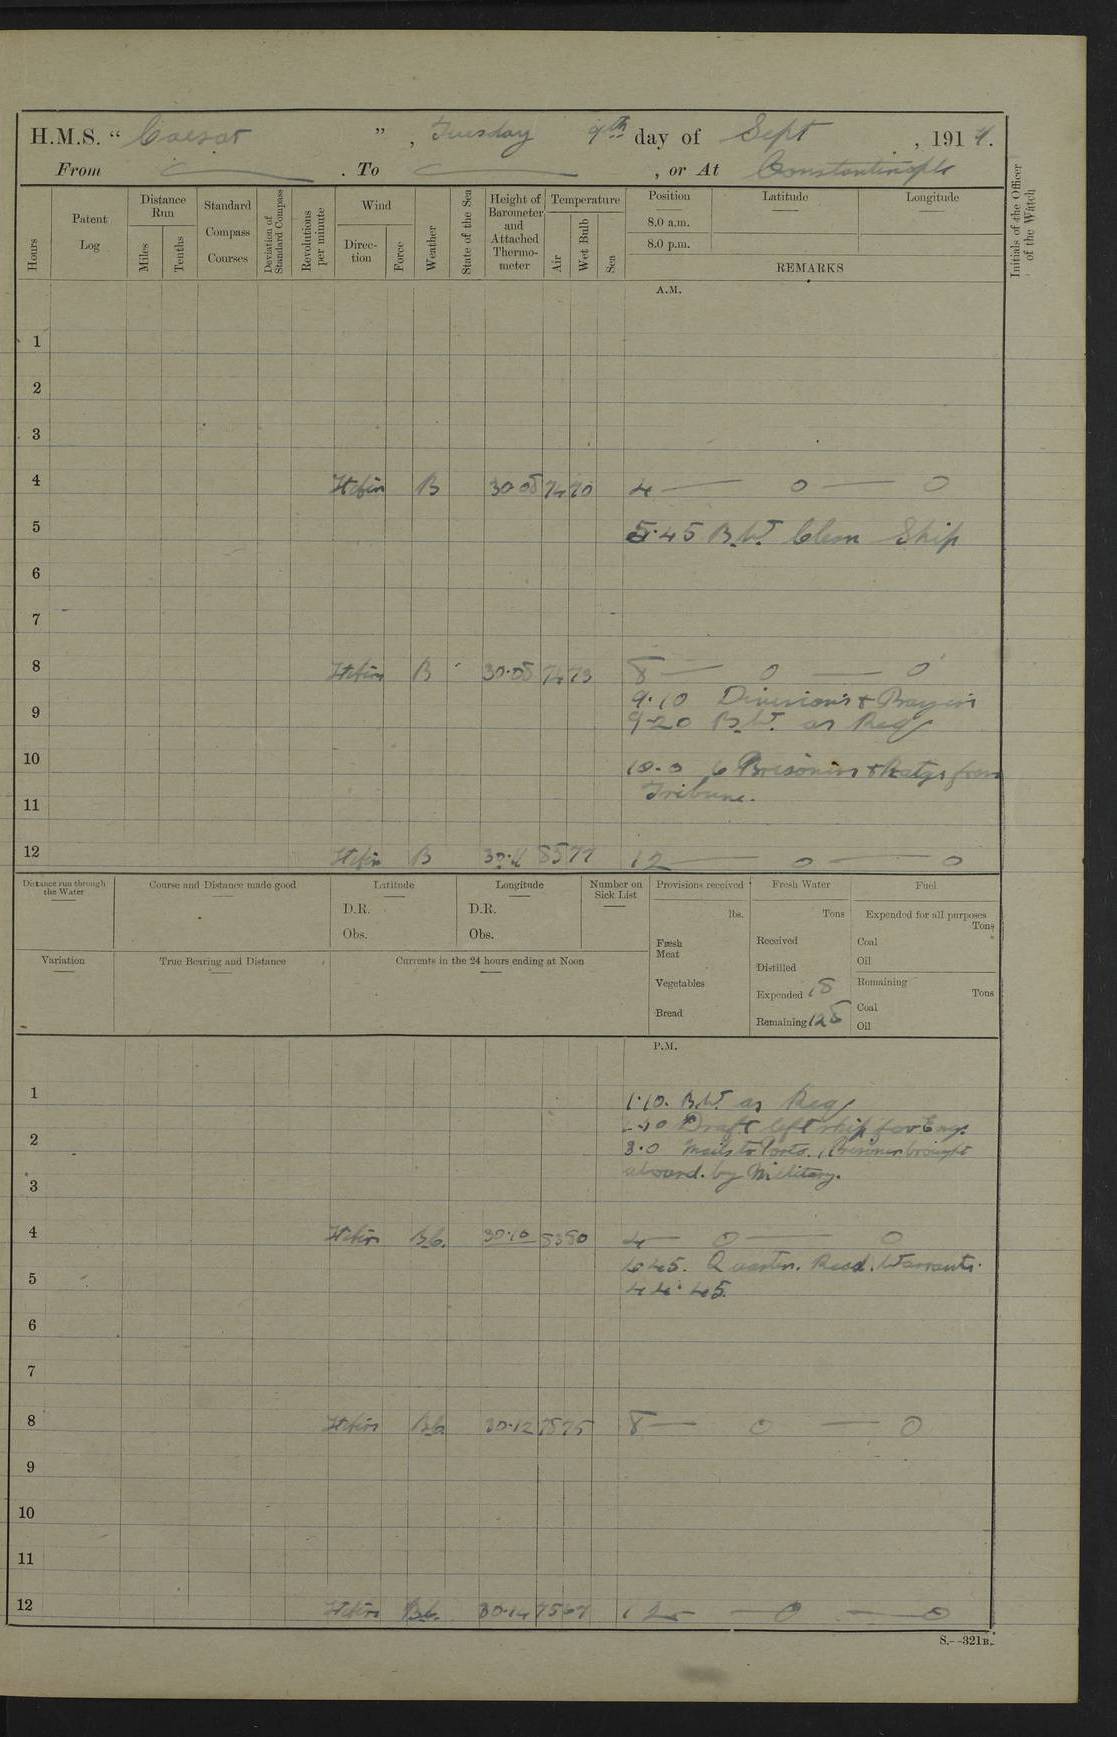 H.M.S. " Caesar ", Tuesday 9th day of Sept, 1919.
From . To , or At Constantinople
Hours
Patent Log
Distance Run
Miles
Tenths
Standard Compass Courses
Deviation of Standard Compass
Revolutions per minute
Wind
Direction
Force
Weather
State of the Sea
Height of Barometer and Attached Thermometer
Temperature
Air
Wet Bulb
Sea
Position
8.0 a.m.
8.0 p.m.
Latitude
Longitude
REMARKS
Initials of the Officer of the Watch
A.M.
1
2
3
4 B 30.05 74 70 4 — 0 — 0
5 5.45 B.W. Clean Ship
6
7
8 B 30.05 74 73 8 — 0 — 0
9.10 Divisions & Prayers
9 9.20 B.W. as Reqd
10 10.0 6 Prisoners & from
11 Tribune.
12 B 85 77 12 — 0 — 0
Distance run through the Water
Course and Distance made good
Latitude
D.R.
Obs.
Longitude
D.R.
Obs.
Number on Sick List
Provisions received
lbs.
Fresh Meat
Vegetables
Bread
Fresh Water
Tons
Received
Distilled
Expended 18
Remaining 125
Fuel
Expended for all purposes
Tons
Coal
Oil
Remaining
Tons
Coal
Oil
Variation
True Bearing and Distance
Currents in the 24 hours ending at Noon
P.M.
1 1.10. B.W. as Reqd
Draft left ship for Eng.
2 3.0 Mails to Ports. 1 Prisoner brought
3 aboard by Military.
4 B.C. 30.10 83 80 4 — 0 — 0
4.45. Quarters. Read. Warrants.
5 44. 45.
6
7
8 B.C. 30.12 78 75 8 — 0 — 0
9
10
11
12 B.C. 30.14 75 67 12 — 0 — 0
S.--321B.